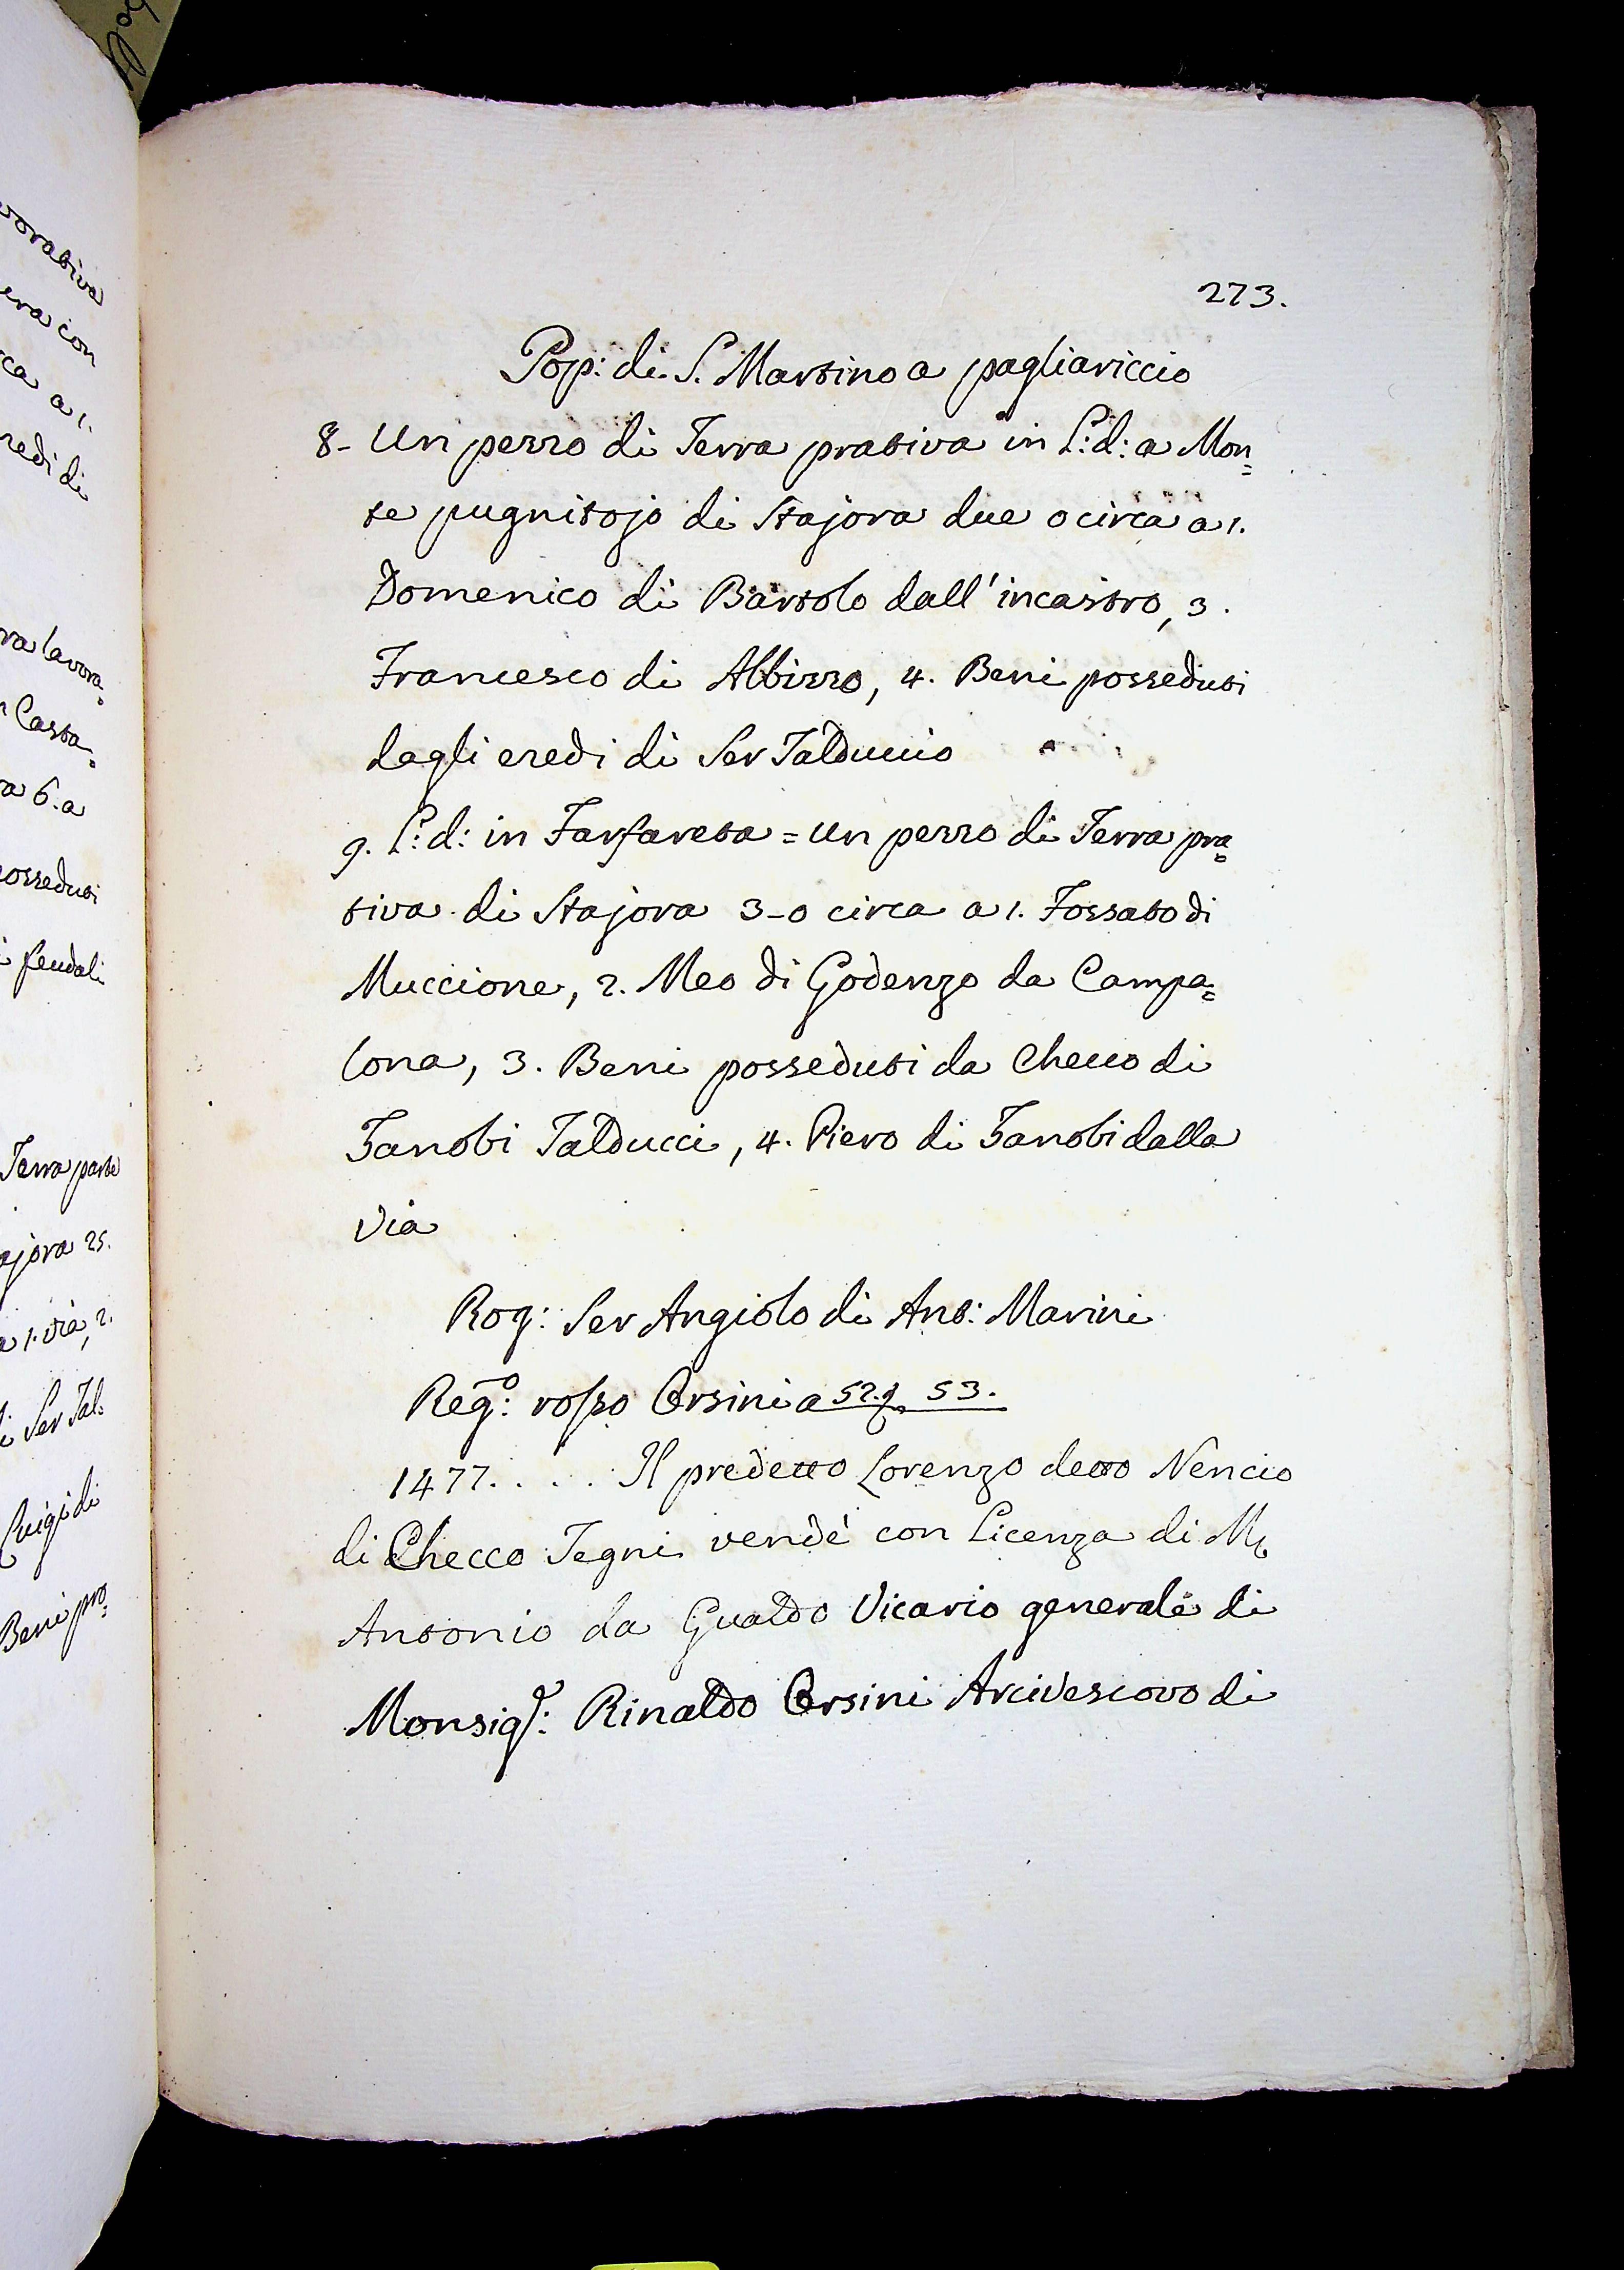 273.
Pop: di S. Martino a pagliariccio
8- Un pezzo di Terra prativa in L: d: a Mon=
te pugnitojo di Stajora due o circa a 1.
Domenico di Bartolo dall'incastro, 3.
Francesco di Albizzo, 4. Beni posseduti
dagli eredi di Ser Talduccio
9. L: d: in Farfareta = un pezzo di Terra pra=
tiva di Stajora 3-o circa a 1. Fossato di
Muccione, 2. Meo di Godenzo da Campa=
lona, 3. Beni posseduti da Checco di
Zanobi Talducci, 4. Piero di Zanobi dalla
via
Rog: Ser Angiolo di Ant: Marini
Reg:º rosso Orsini a 52. e 53.
1477. . . . . Il predetto Lorenzo detto Nencio
di Checco Tegni vendè con Licenza di M.
Antonio da Gualdo Vicario generale di
Monsig:r Rinaldo Orsini Arcivescovo di
vorativa
era con
cca a 1.
redi di
ra lavora=
Casta=
ra 6. a
posseduti
i feudali
Terra parte
ajora 25.
a 1. via, 2.
di Ser Tal=
Luigi di
Beni pro=